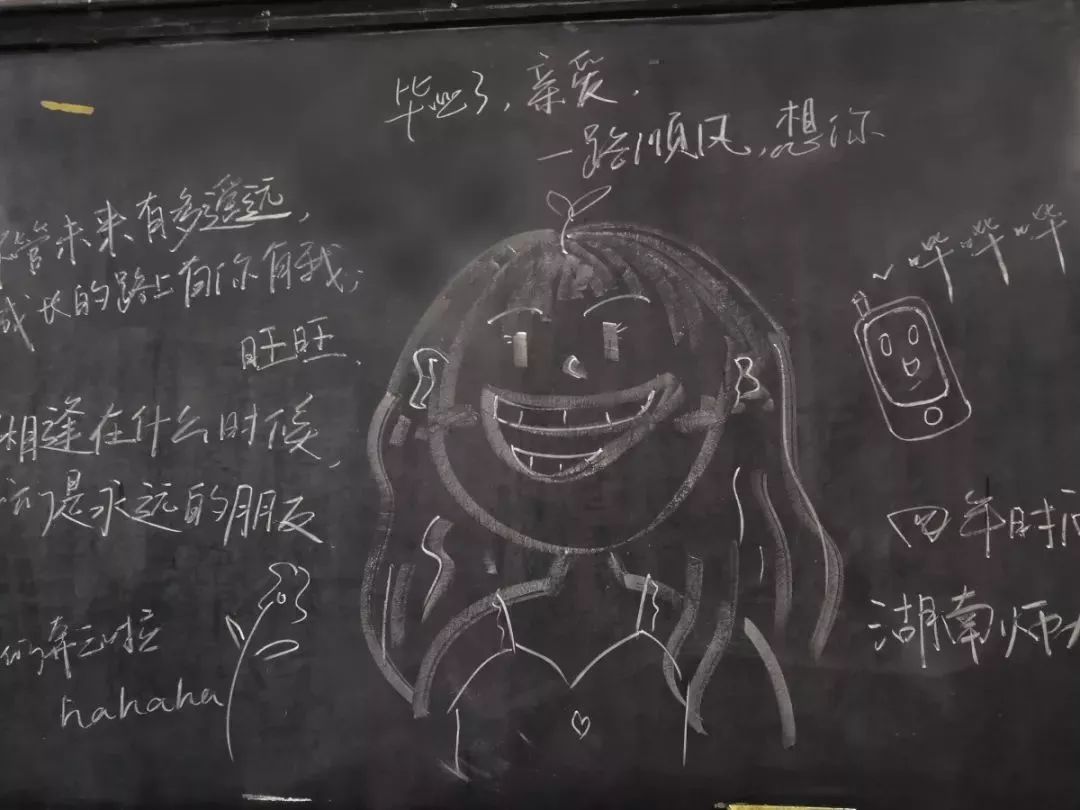 毕业了，亲爱，
一路顺风，想你
管未来有多遥远，
成长的路上有你有我；
旺旺
相逢在什么时候，
们是永远的朋友
hahaha
哔哔哔
四年时间
湖南师大